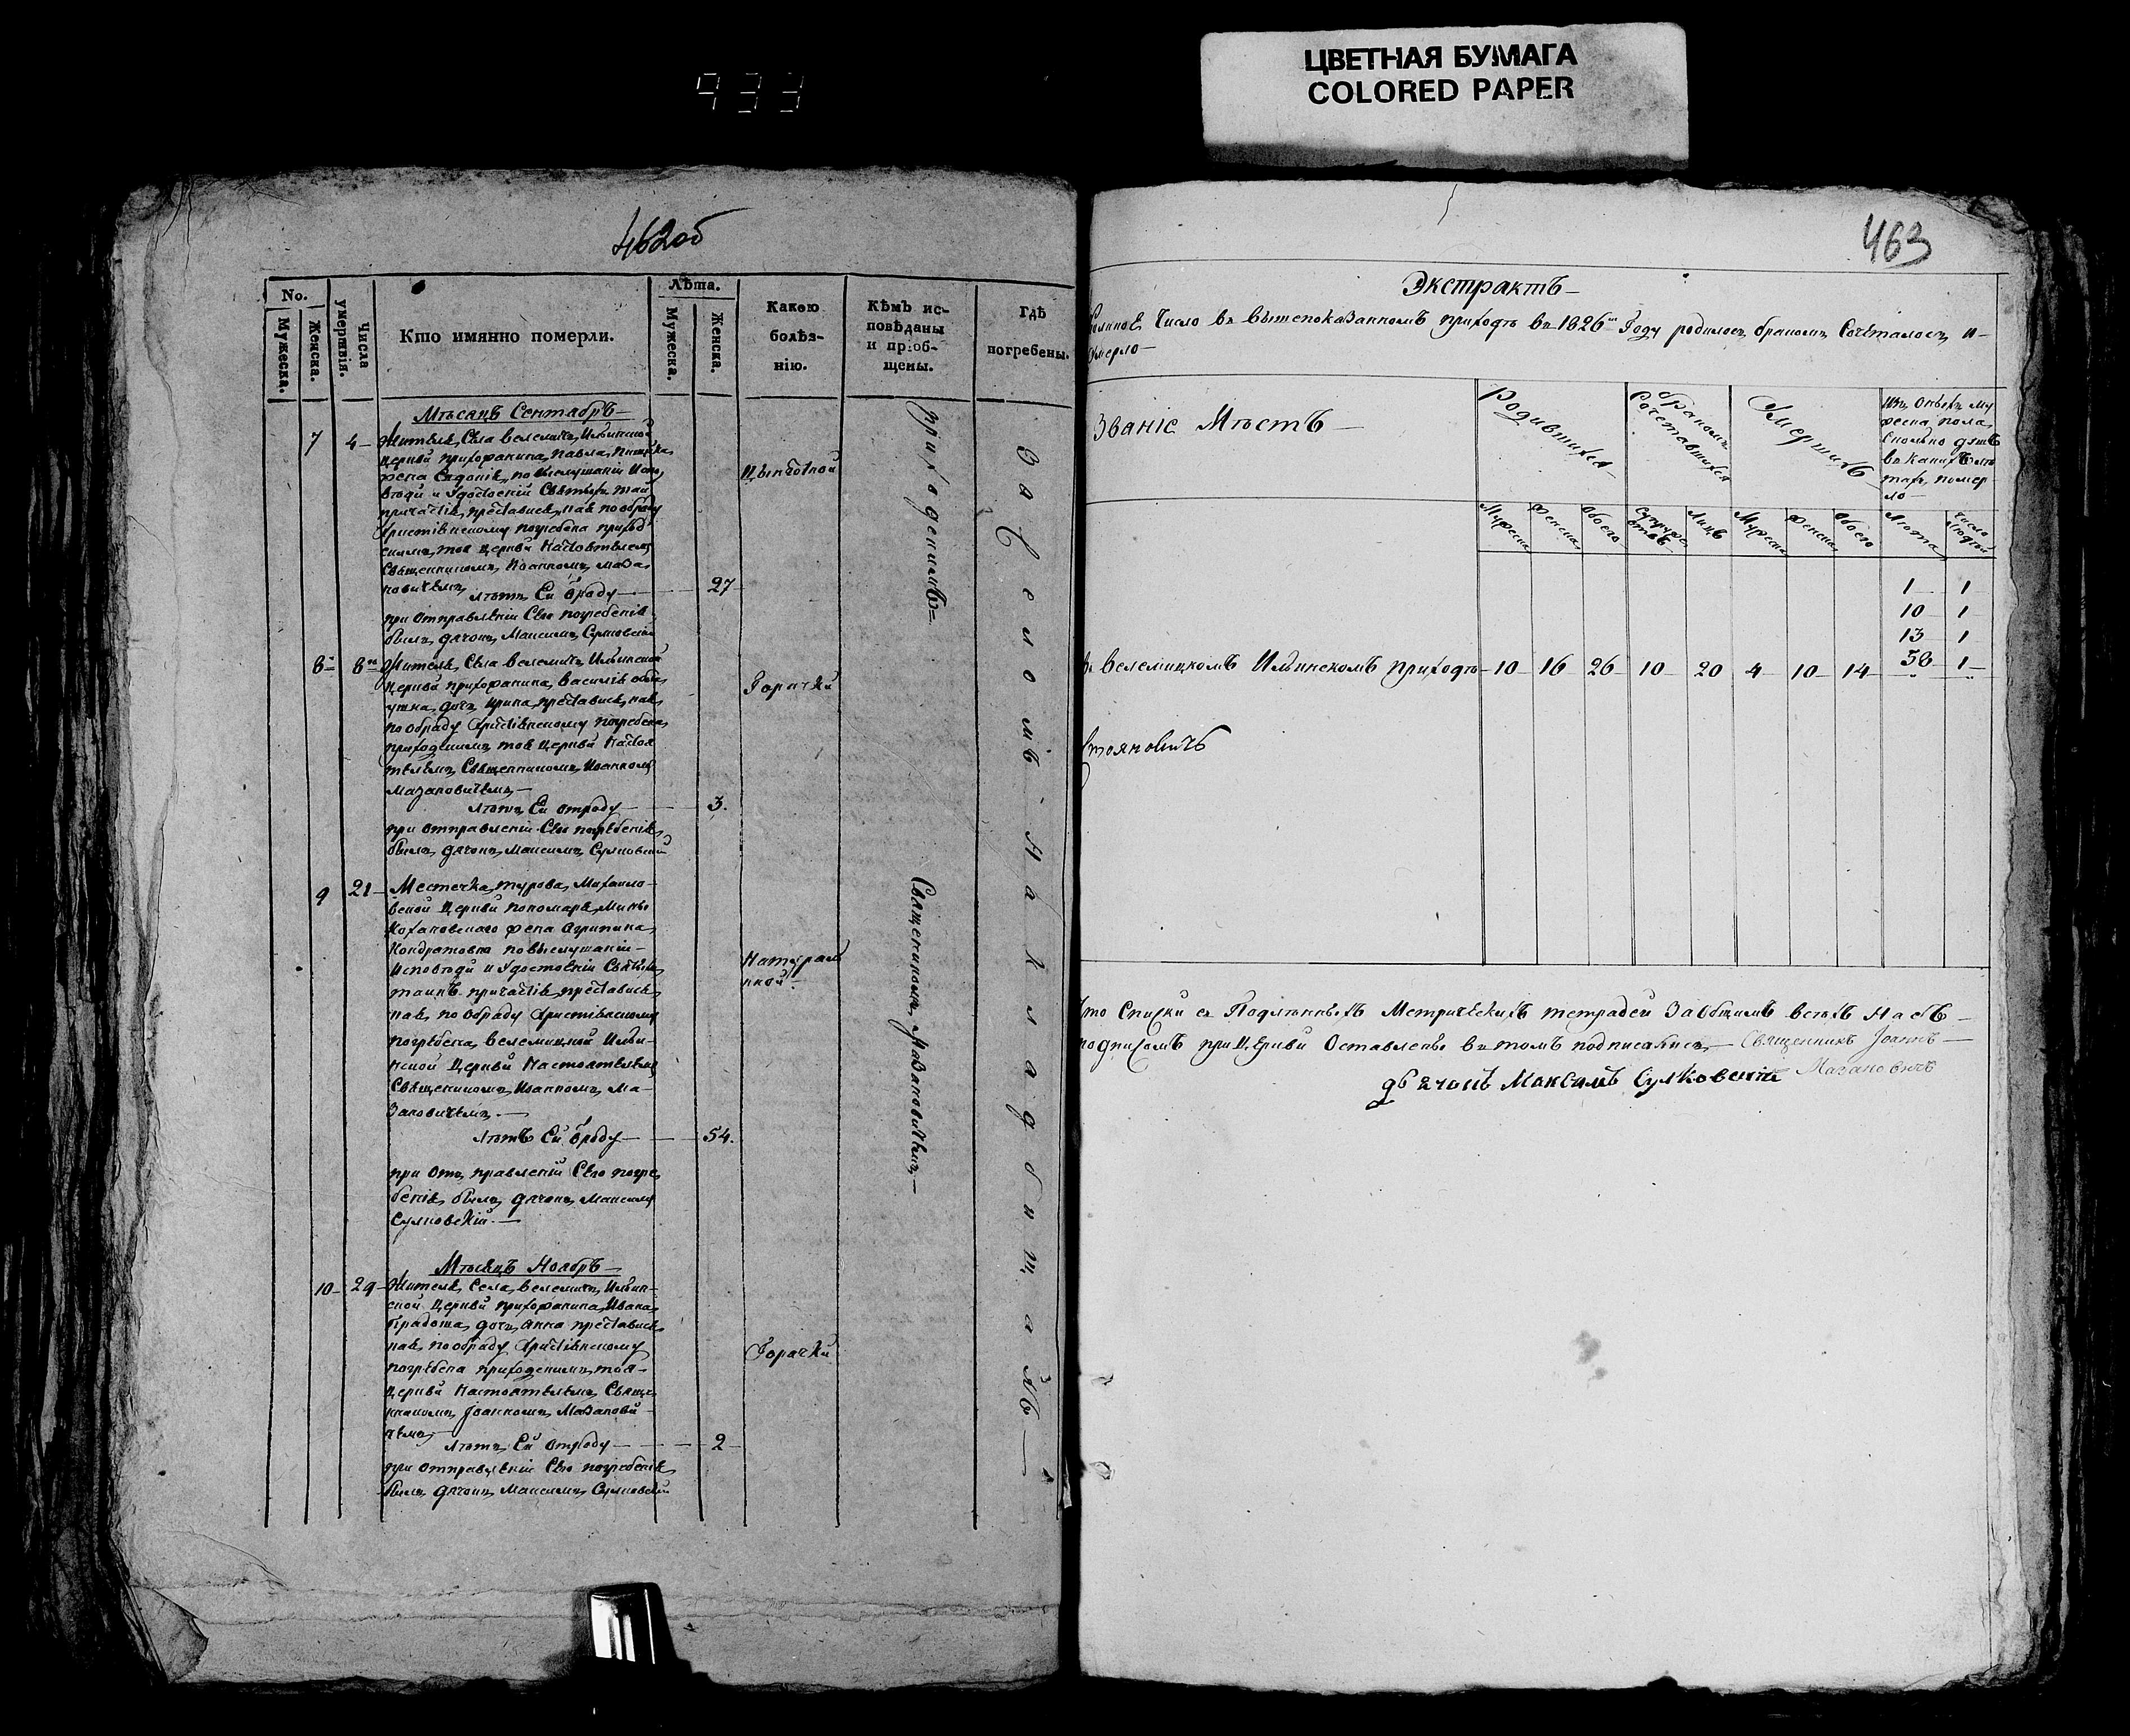 933
ЦВЕТНАЯ БУМАГА
COLORED PAPER
462об
No.
Мужеска.
Женска.
Числа умертвія.
Кто имянно померли.
Лѣта.
Мужеска.
Женска.
Какою болѣз-нію.
Кѣмъ ис-
повѣданы
и пріоб-
щены.
Гдѣ
погребены.
Мѣсяцъ Сентябръ
7 4 Жителя Села Велемичъ Ильинской
Церкви прихожанина Павла
жена Євдокія, по выслушаніи Испо
вѣди и Удостоеніи Святыхъ Таи
причастія преставися, яже по обряду
Христіянскому погребена приход
скимъ, тоя Церкви Настоятелемъ
Священникомъ, Иоанномъ, Маза
новичемъ
лѣтъ Ей ѿ роду 27
при отправленіи Сего погребенія
былъ, дячонъ, Максимъ, Сулковскій
Приходскимъ
Священикомъ, Мазановичемъ
За Селомъ На кладбищахъ
8 8 Жителя, Села Велемичъ Ильинской
Церкви прихожанина, Василія
дочъ, Ирина, преставися, яже
по обряду Христіянскому погребена
приходскимъ тоя Церкви Настоя
телемъ, Священникомъ, Иоанномъ
Мазановичемъ
Горячки
лѣтъ Ей отроду 3.
при отправленіи Сего погребенія
былъ, дячонъ, Максимъ, Сулковскій
9 21 Местечка, Турова, Михаило-
вской Церкви пономаря, Мины
Кохановскаго жена Агрипина
Кондратовна по выслушаніи
Исповѣди и Удостоеніи Святыхъ
таинъ причастія, преставися
яже, по обряду Христіянскому
погребена, Велемицкой Ильи-
нской Церкви Настоятелемъ
Священикомъ, Иоанномъ, Ма-
зановичемъ
Натурал
нной
лѣтъ Ей ѿроду 54.
при отправленіи Сего погре
бенія, былъ, дячонъ, Максимъ
Сулковскій
Мѣсяцъ Ноябръ
10 29 Жителя, Села, Велемичъ, Ильин-
ской Церкви прихожанина, Ивана
дочъ, Анна преставися
яже, по обряду Христіянскому
погребена приходскимъ, тоя
Церкви Настоятелемъ, Свяще
нникомъ, Іоанномъ, Мазанови
чемъ
Горячки
лѣтъ Ей отроду 2
при отправленіи Сего погребенія
былъ дячонъ, Максимъ, Сулковскій
463
Экстрактъ
Число въ вышепоказанномъ приходѣ въ 1826 Году родилось, бракомъ Сочеталось, и
умерло
Званіе Мѣстъ
Родившихся
бракомъ Сочетавшихся
Умершихъ
Изъ оныхъ му
жеска, пола,
сколько душъ
въ какихъ лѣ
тахъ, помер
ло
Мужеска
Женска
Обоего
Супружествъ
Лицъ
Мужеска
Женска
Обоего
Лѣта
Число людей
1 1
10 1
13 1
38 1
въ Велемицкомъ Ильинскомъ приходѣ 10 16 26 10 20 4 10 14
Стояновичъ
что Списки съ Подлѣнныхъ Метрическихъ тетрадей За общимъ всѣхъ Насъ
подписомъ при Церкви Оставлены въ томъ подписались Священникъ Іоаннъ
Мазановичъ
дьячонъ Максимъ Сулковскій